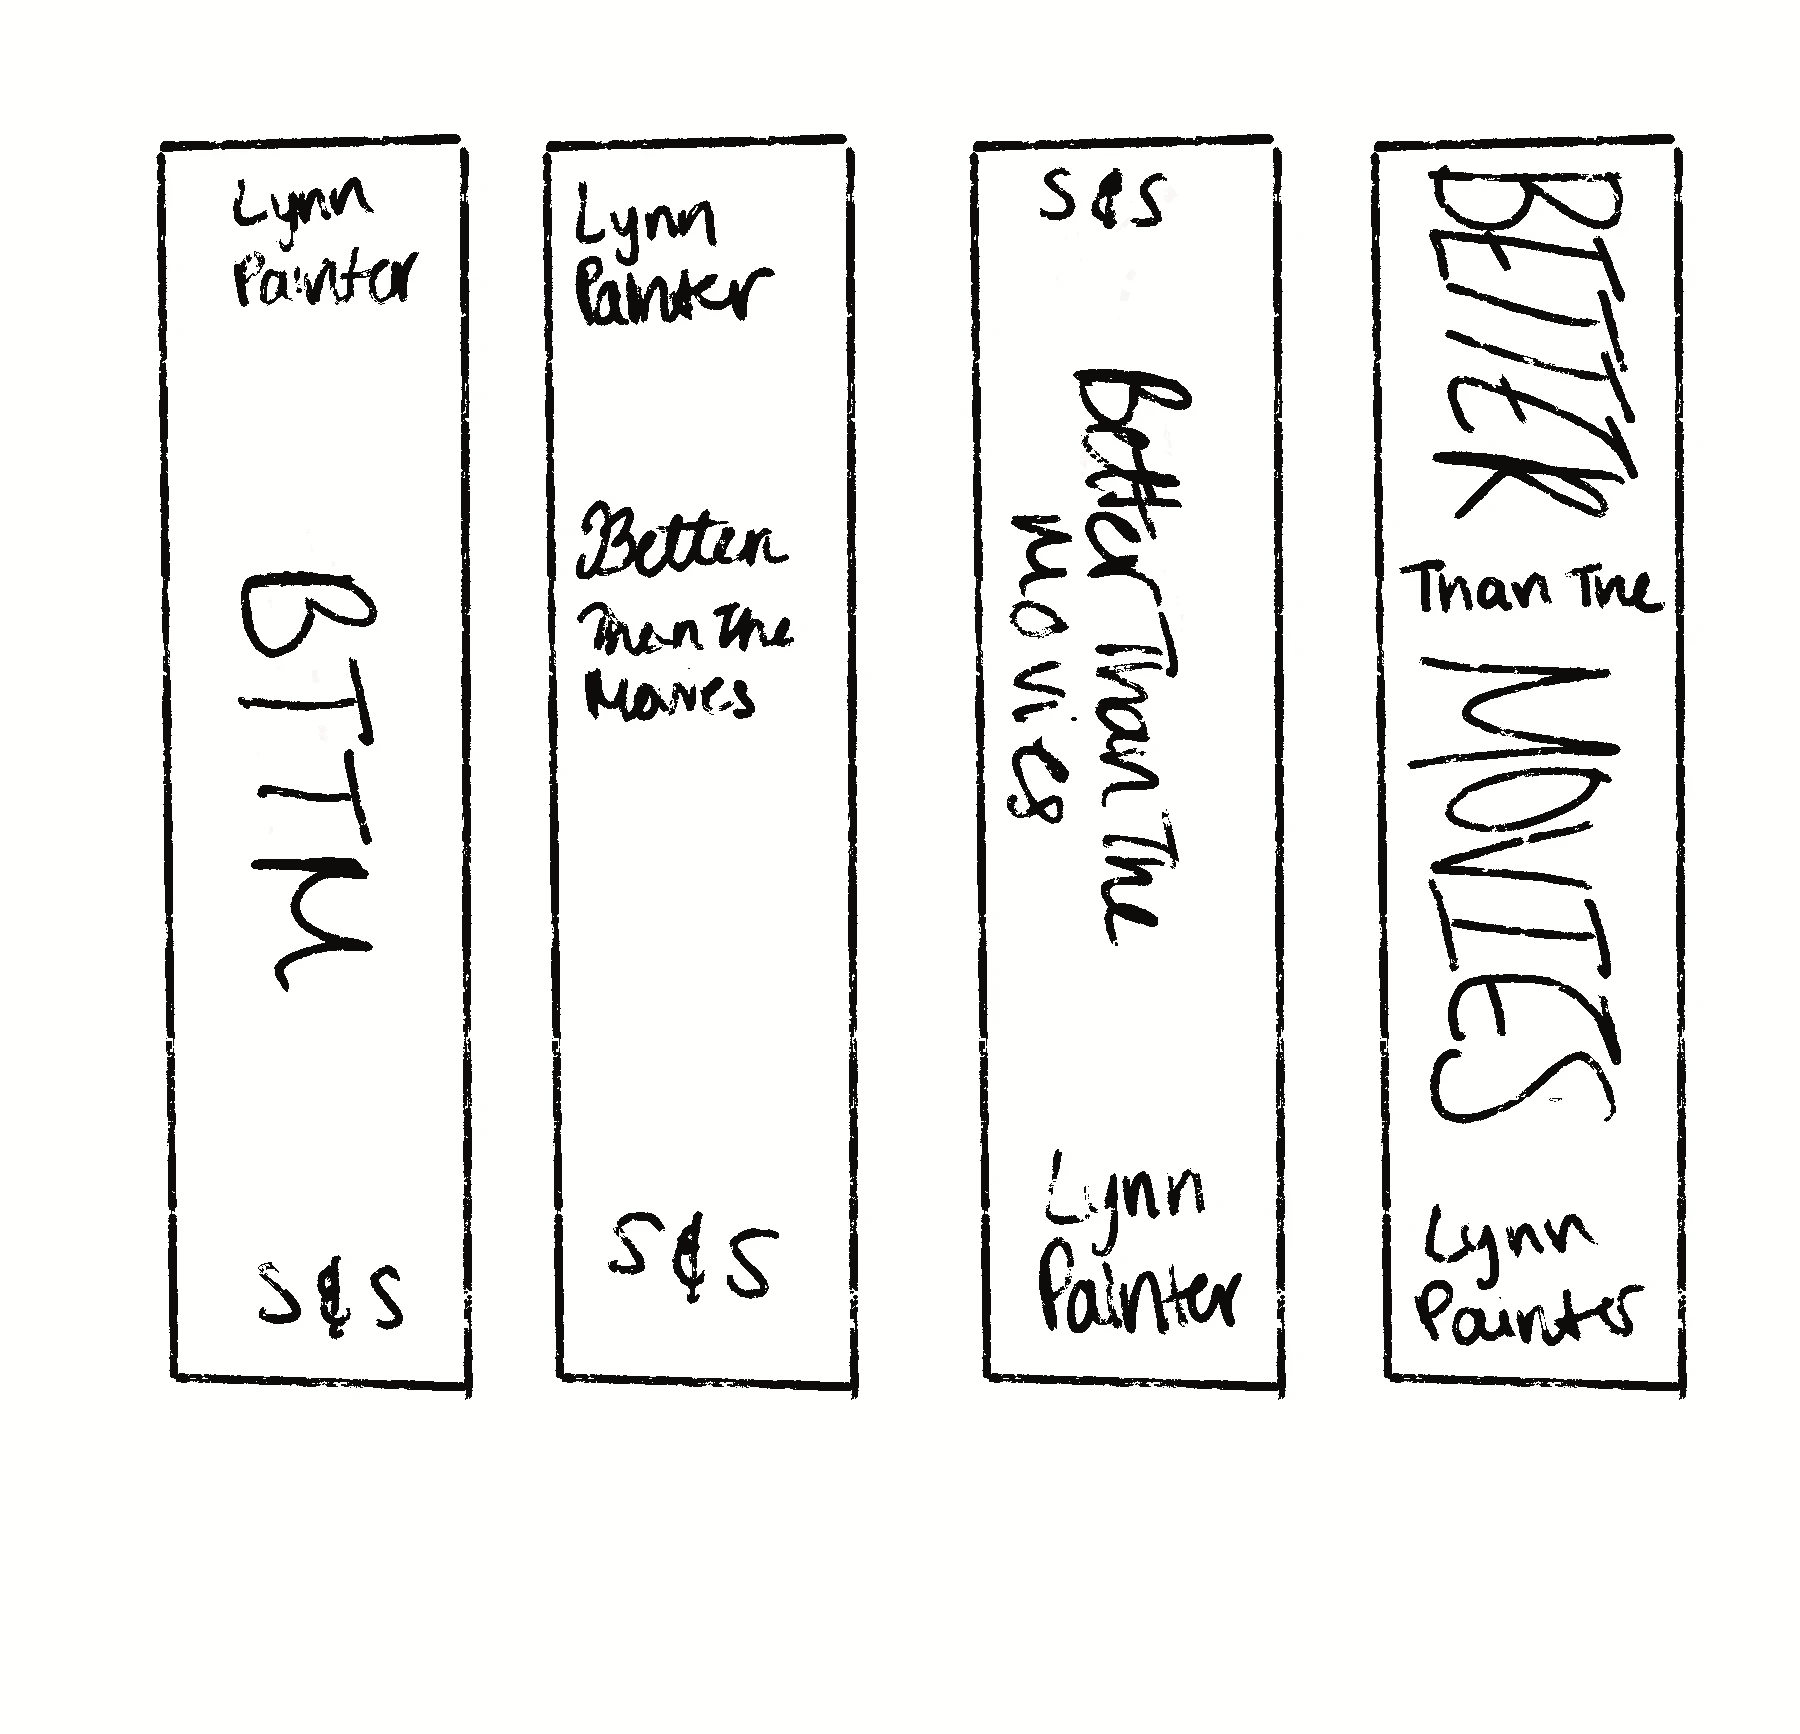 Lynn
Painter
BTTM
S & S
Lynn
Painter
Better
Than The
Movies
S & S
S & S
Better Than The
Movies
Lynn
Painter
BETTER
Than The
MOVIES
Lynn
Painter